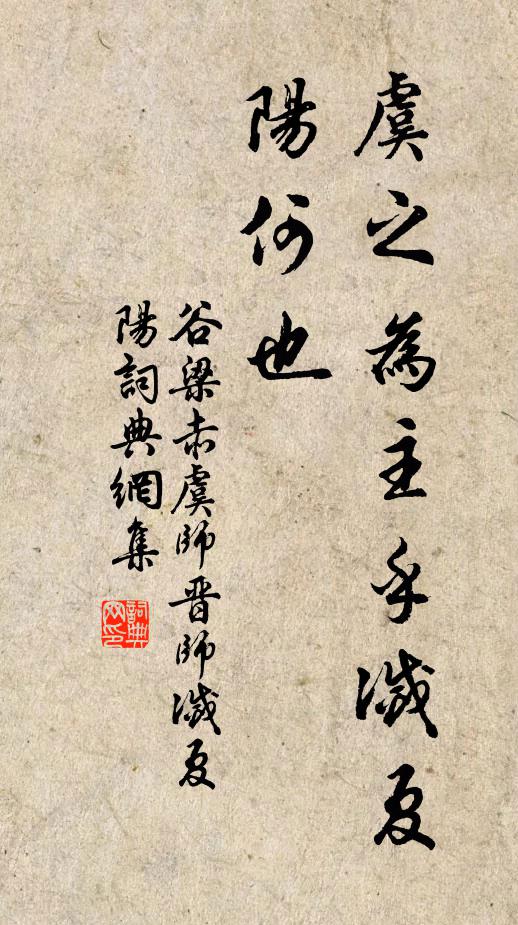 虞之為主乎滅夏
陽何也
谷梁赤虞師晋師滅夏
陽詞典網集
詞典
网印